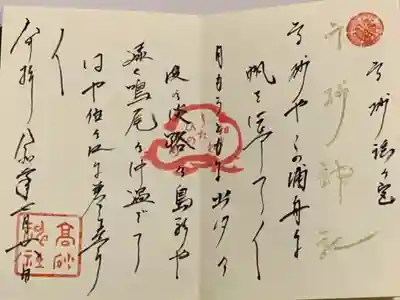 高砂謡の宮
高砂神社
高砂やこの浦舟に
帆を上げて〱
月もろともに出汐の
波の淡路の島影や
遠く鳴尾の沖過ぎて
はや住の江に着きにけり
〱
奉拝
高砂神社